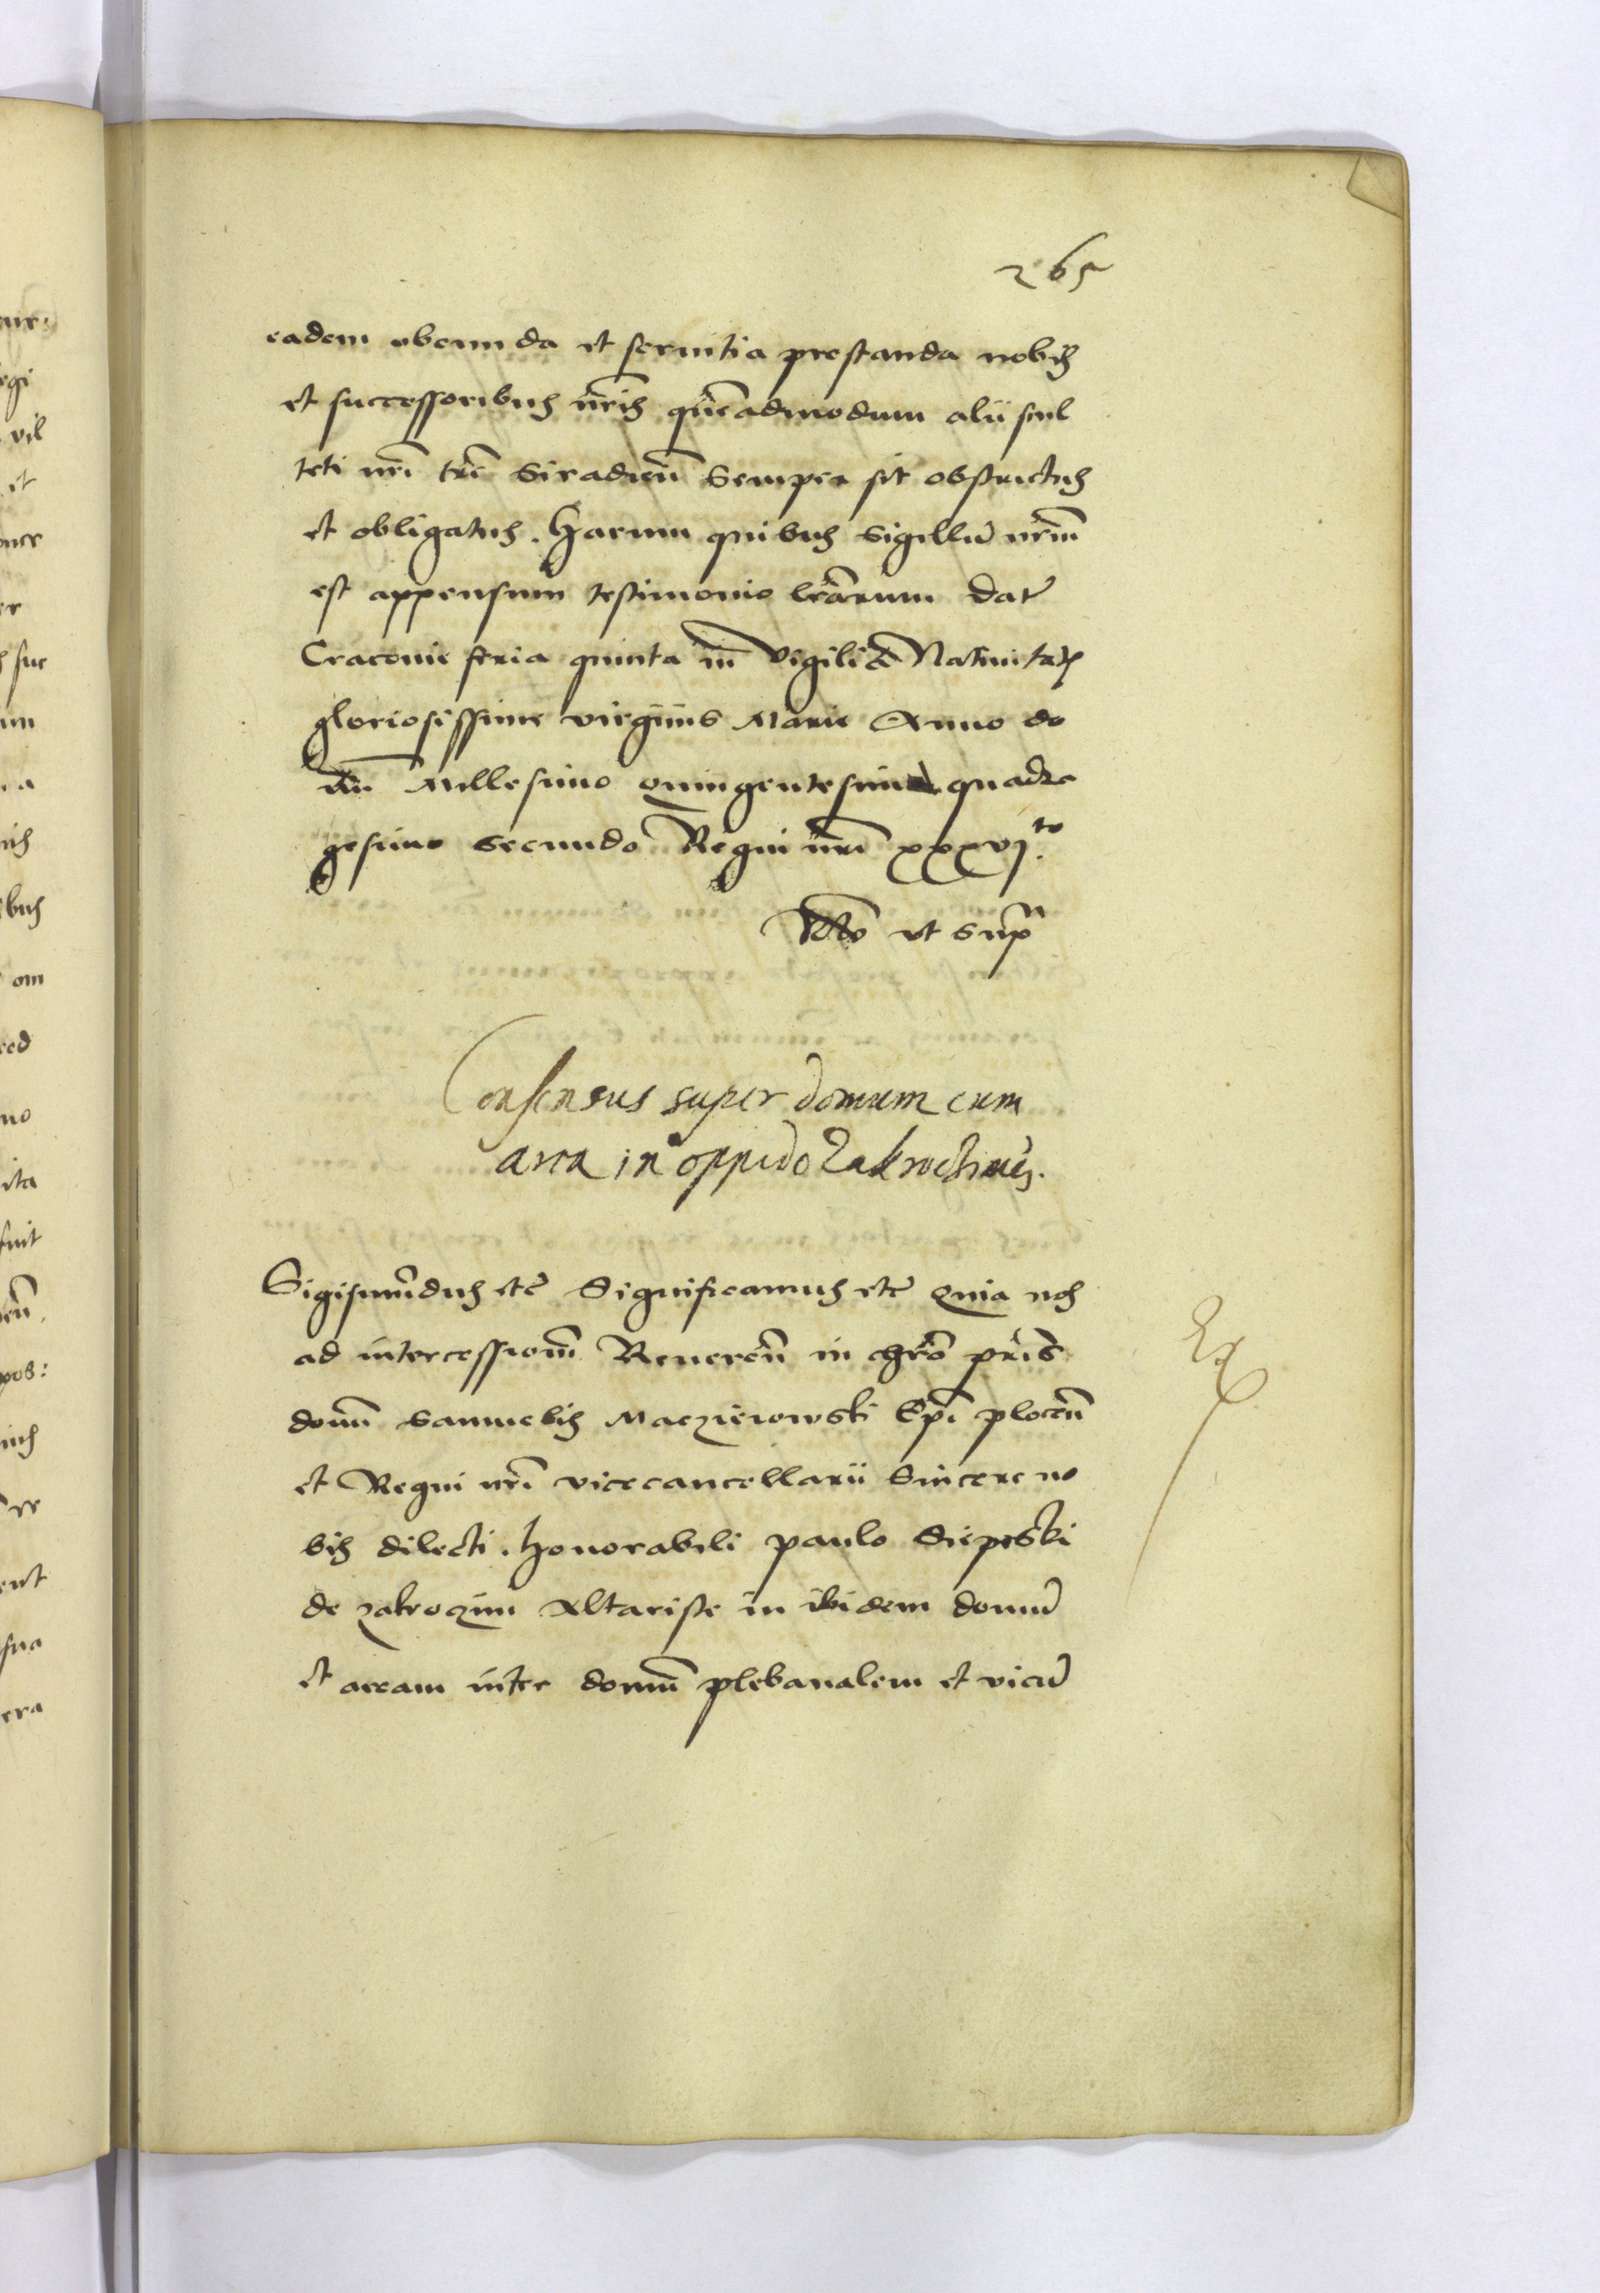 265
eadem obeunda et seruitia prestanda nobis
et successoribus nr̃is quẽadmodum alii scul
teti nr̃i tr̃e Siradien̄ semper sit obstrictus
et obligatus. Harum quibus sigillũ nr̃um̄
est appensum testimonio lr̃arum dat̃
Craconie feria quinta in̄ vigilia Natiuitat̃
gloriosissime virginis Marie Anno do
mi Millesimo quingentesimo quadra
gesimo secundo Regni nr̃i xxxvj.to
ut sup̃
Consensus super domum cum
area in oppido Zakrochimen̄.
Sigismũdus etc̃ Significamus etc̃ Quia nos
ad intercessionem̄ Reueren̄ in chr̃o pr̃is
domī Samuelis Maczieiowski Ep̃i plocen̄
et Regni nr̃i vicecancellarii Sincere no
bis dilecti. honorabili paulo Siepski
de zakroczim Altariste in ibidem domũ
et aream inter domũ plebanalem et vicũ